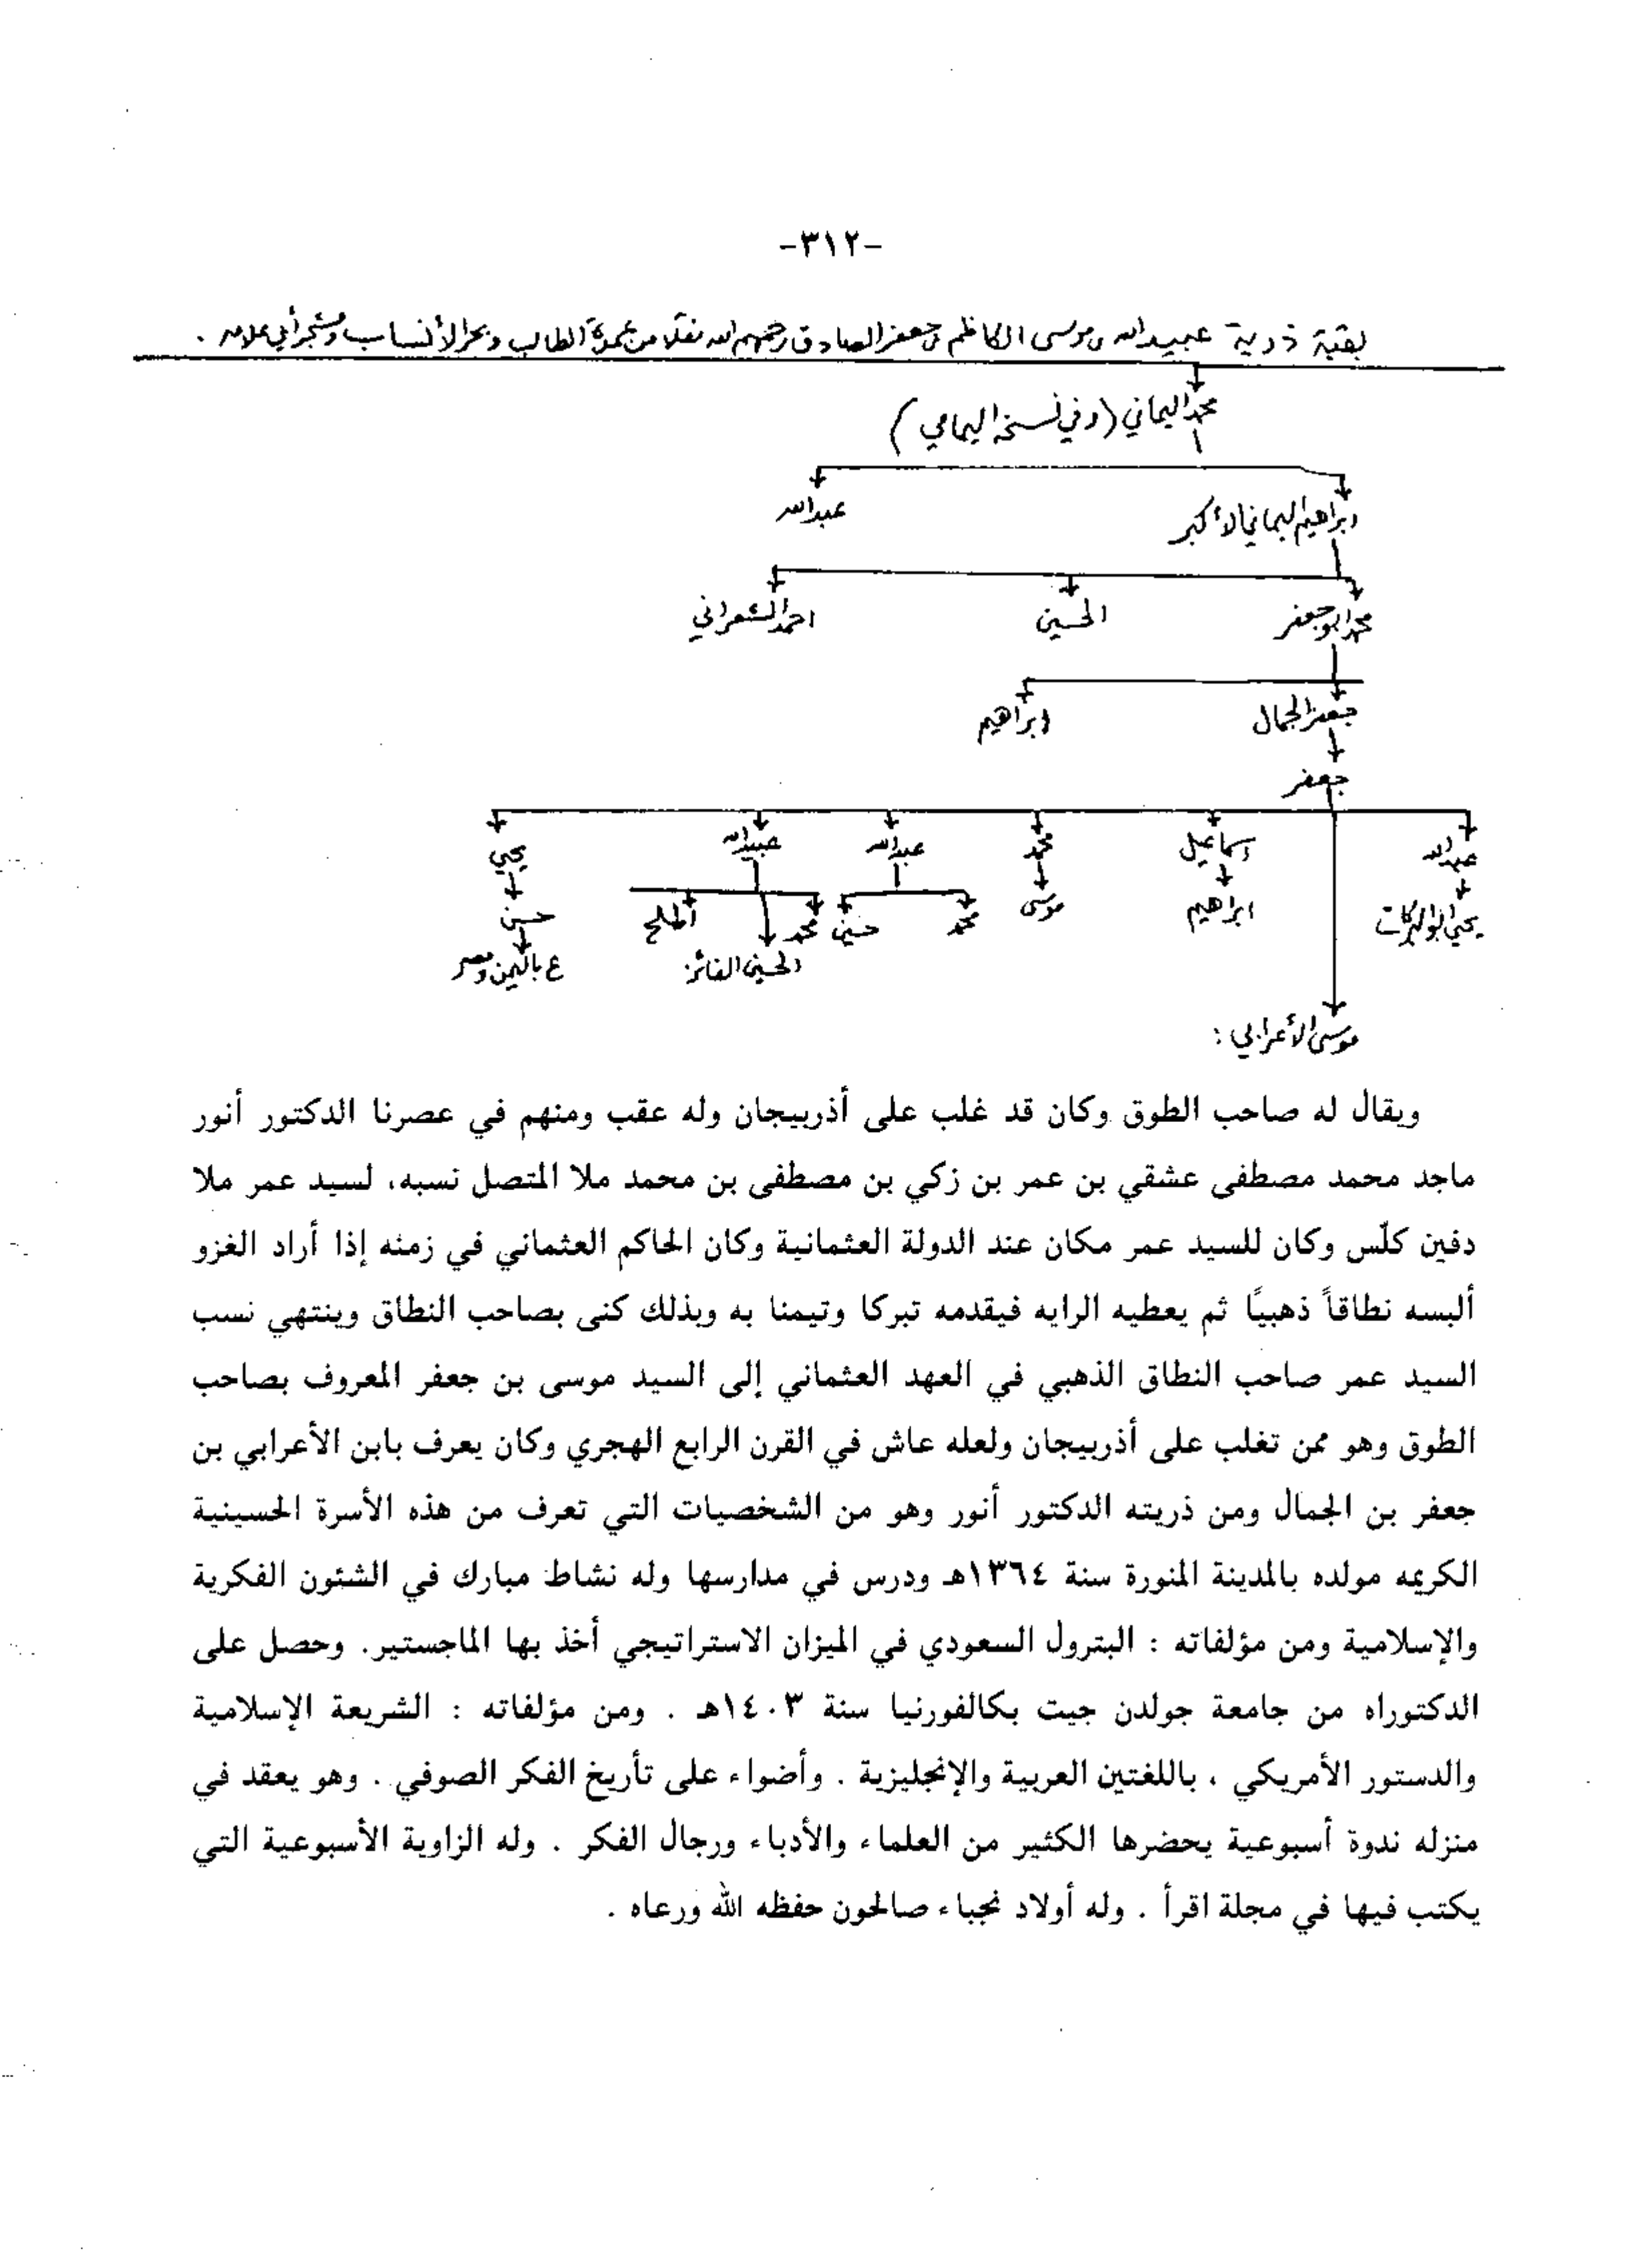 -٣١٢-
بقية ذرية عبيدالله بن موسى الكاظم بن جعفر الصادق رحمهم الله نقلا من عمدة الطالب وبحر الأنساب ومشجر أبي علامه .
محمد اليماني (وفي نسخه اليمامي)
ابراهيم اليماني الأكبر عبدالله
محمد ابو جعفر الحسين احمد الشعراني
جعفر الجمال ابراهيم
جعفر
عبدالله اسماعيل محمد عبدالله عبيدالله يحيي
يحيي ابو البركات ابراهيم موسى محمد حسين محمد حسن
الحسين الفائز ع باليمن ومصر
موسى الأعرابي :
ويقال له صاحب الطوق وكان قد غلب على أذربيجان وله عقب ومنهم في عصرنا الدكتور أنور
ماجد محمد مصطفى عشقي بن عمر بن زكي بن مصطفى بن محمد ملا المتصل نسبه، لسيد عمر ملا
دفين كلّس وكان للسيد عمر مكان عند الدولة العثمانية وكان الحاكم العثماني في زمنه إذا أراد الغزو
ألبسه نطاقاً ذهبيًا ثم يعطيه الرايه فيقدمه تبركا وتيمنا به وبذلك كنى بصاحب النطاق وينتهي نسب
السيد عمر صاحب النطاق الذهبي في العهد العثماني إلى السيد موسى بن جعفر المعروف بصاحب
الطوق وهو ممن تغلب على أذربيجان ولعله عاش في القرن الرابع الهجري وكان يعرف بابن الأعرابي بن
جعفر بن الجمال ومن ذريته الدكتور أنور وهو من الشخصيات التي تعرف من هذه الأسرة الحسينية
الكريمه مولده بالمدينة المنورة سنة ١٣٦٤هـ ودرس في مدارسها وله نشاط مبارك في الشئون الفكرية
والإسلامية ومن مؤلفاته : البترول السعودي في الميزان الاستراتيجي أخذ بها الماجستير. وحصل على
الدكتوراه من جامعة جولدن جيت بكالفورنيا سنة ١٤٠٣هـ . ومن مؤلفاته : الشريعة الإسلامية
والدستور الأمريكي ، باللغتين العربية والإنجليزية . وأضواء على تأريخ الفكر الصوفي . وهو يعقد في
منزله ندوة أسبوعية يحضرها الكثير من العلماء والأدباء ورجال الفكر . وله الزاوية الأسبوعية التي
يكتب فيها في مجلة اقرأ . وله أولاد نجباء صالحون حفظه الله ورعاه .